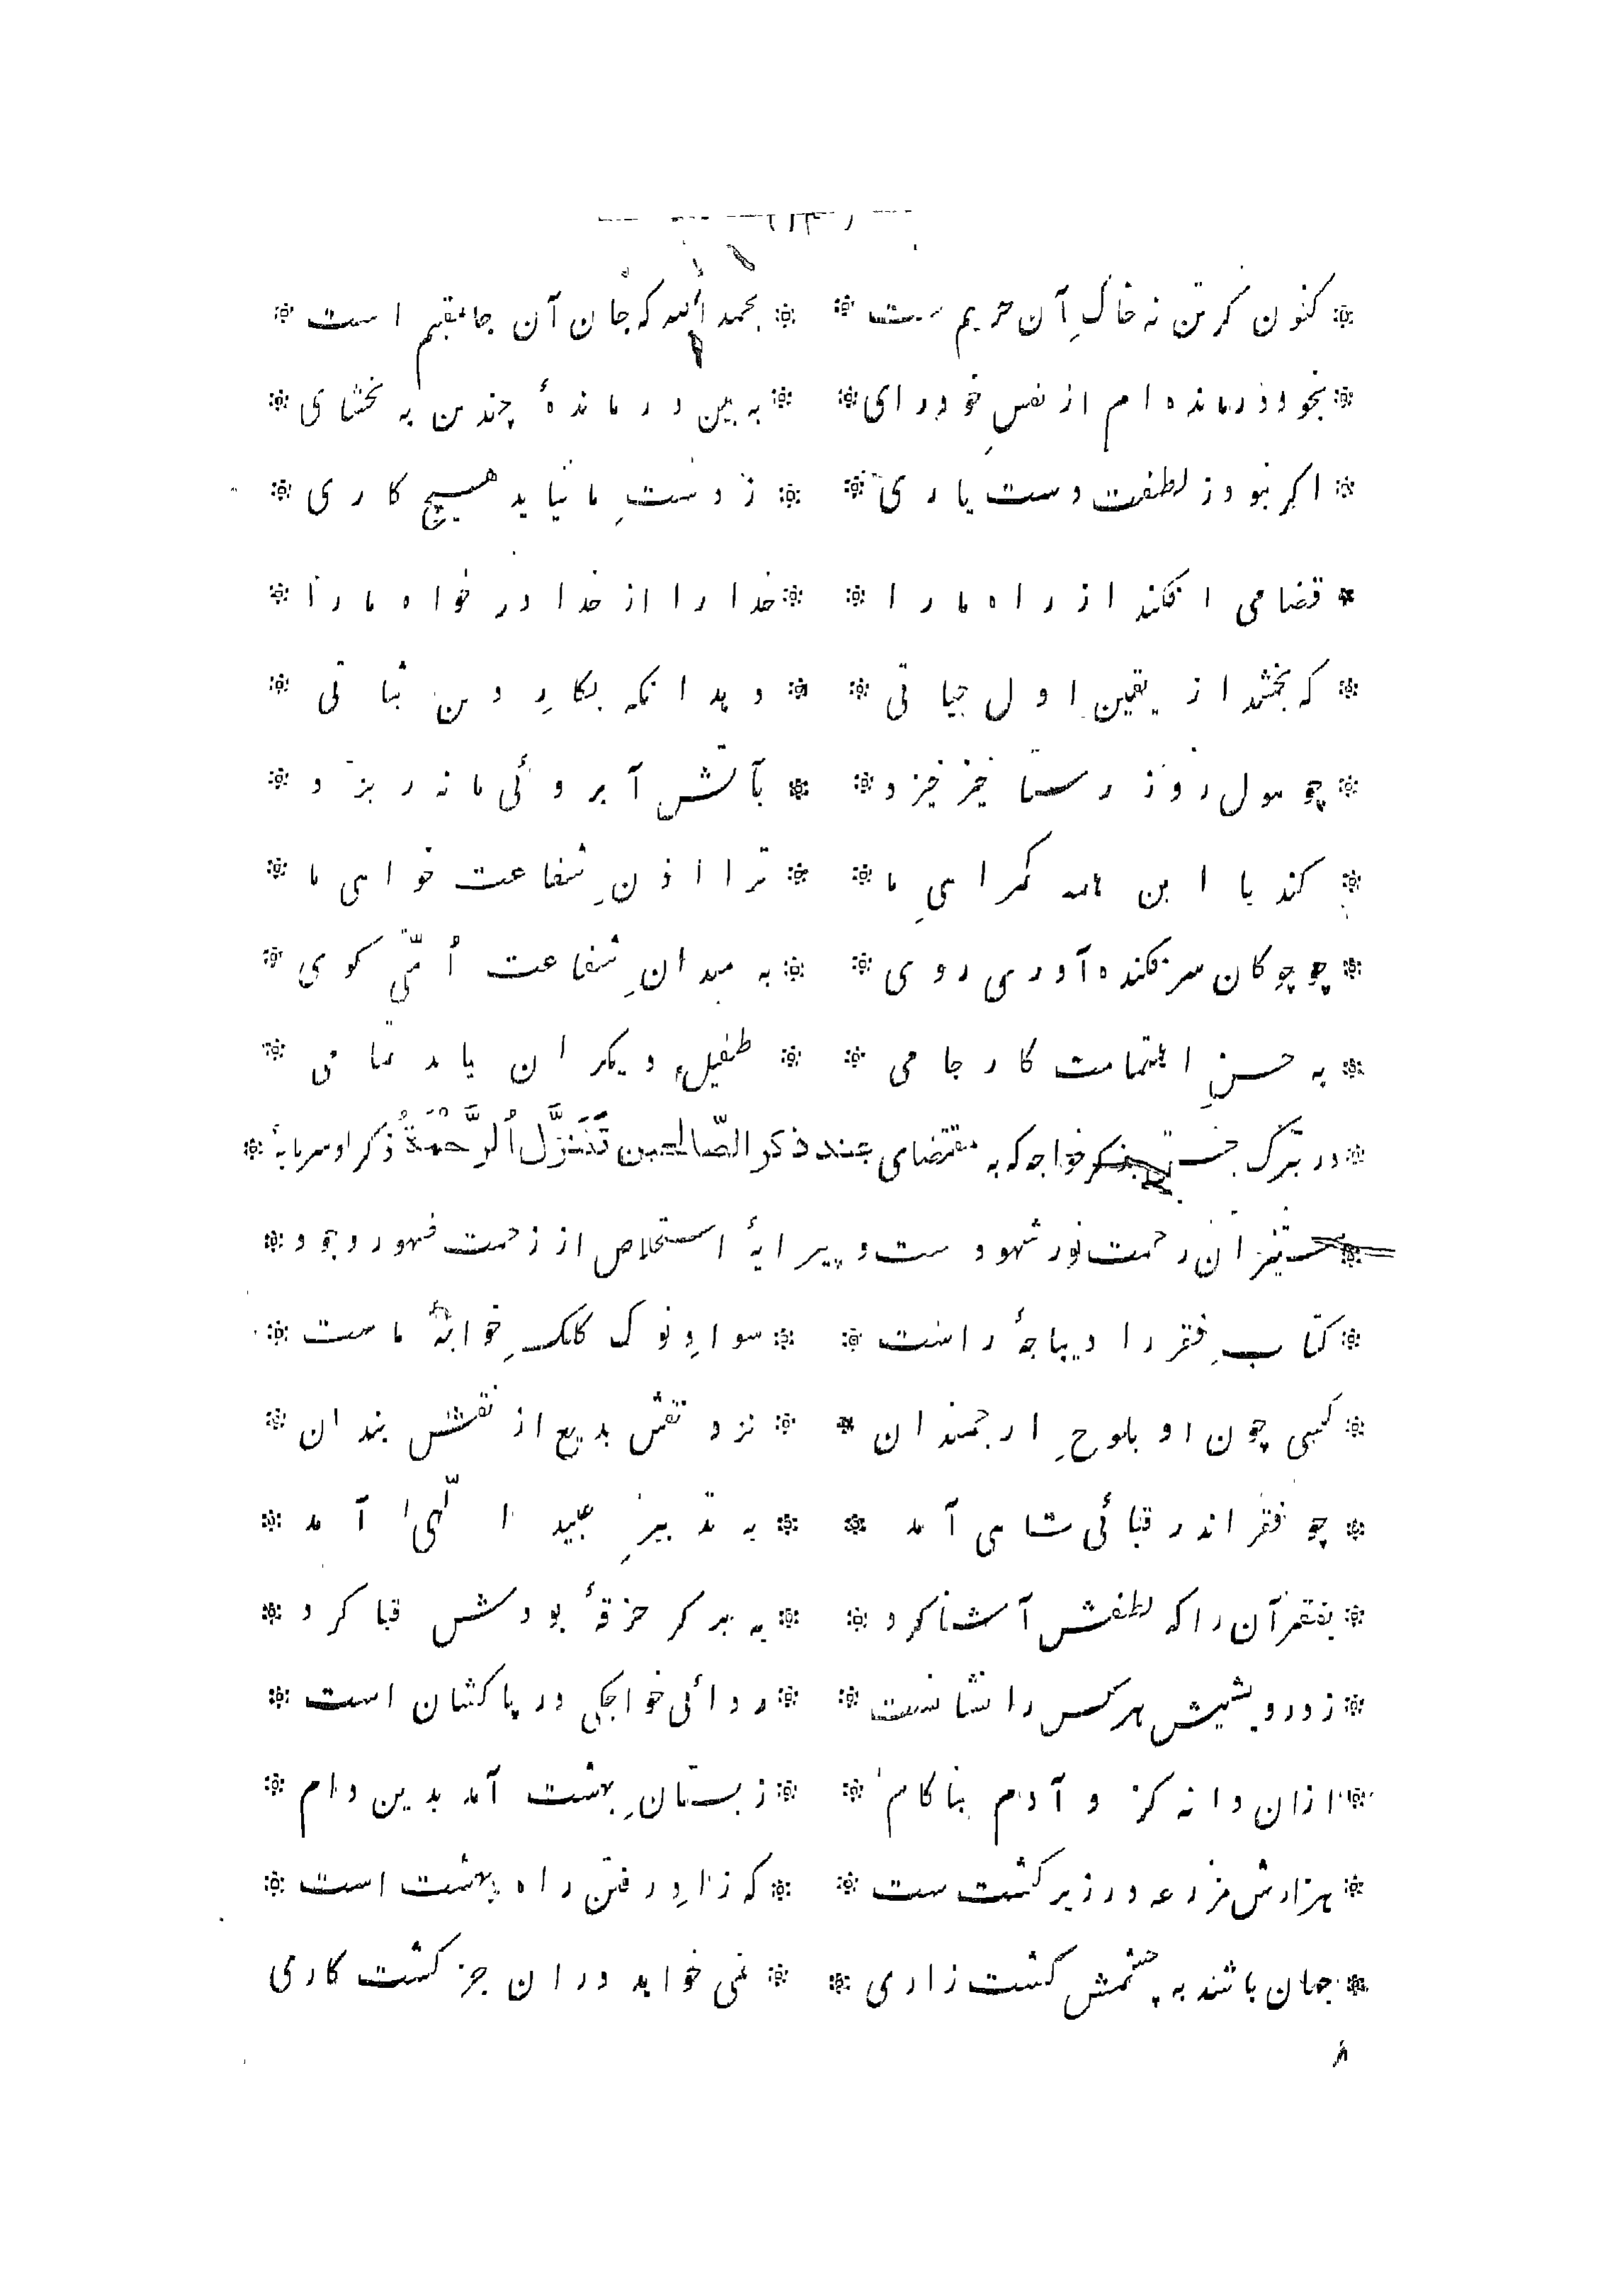 (۱۳)
* کنون گر تن نه خاکِ آن حریم ست * * بحمد اللّه که جان آن جا مقیم است *
* بخود درمانده ام از نفسِ خود رای * * به بین درماندهٔ چندین به بخشای *
* اگر نبود ز لطفت دست یاری * * ز دستِ ما نیاید هیچ کاری *
* قضا می افکند از راه ما را * * خدا را از خدا در خواه ما را *
* که بخشد از یقین اول حیاتی * * دهد انکه بکارِ دین ثباتی *
* چو هول روز رستا خیز خیزد * * بآتش آبروئی ما نه ریزد *
* کند با این همه گمراهیِ ما * * ترا اذنِ شفاعت خواهی ما *
* چو چوگان سرفکنده آوری روی * * به میدانِ شفاعت اُمّتی گوی *
* به حسنِ اهتمامت کار جامی * * طفیلِ دیگران یابد تمامی *
* در تبرّک جستن بذکر خواجه که به مقتضای عند ذکر الصّالحین تَنَزَّل اُلرَّحْمَةُ ذکر او سرمایهٔ *
* ستنزان رحمت نور شهود ست و پیرایهٔ استخلاص از زحمت ظهور وجود *
* کتابِ فقر را دیباجهٔ راست * * سوادِ نوک کلکِ خواجهٔ ماست *
* کسی چون او بلوحِ ارجمندان * * نزد نقش بدیع از نقش بندان *
* چو فقر اندر قبائی شاهی آمد * * به تدبیرِ عبید اللّهی آمد *
* بفقر آن را که لطفش آشنا کرد * * به بر گر خرقهٔ بودش قبا کرد *
* ز درویشیش هر کس را نشانست * * ردائی خواجگی در پا کشان است *
* ازان دانه کزو آدم بناکام * * ز بستانِ بهشت آمد بدین دام *
* هزارش مزرعه در زیر کشت ست * * که زادِ رفتن راه بهشت است *
* جهان باشد به چشمش کشت زاری * * نمی خواهد دران جز کشت کاری